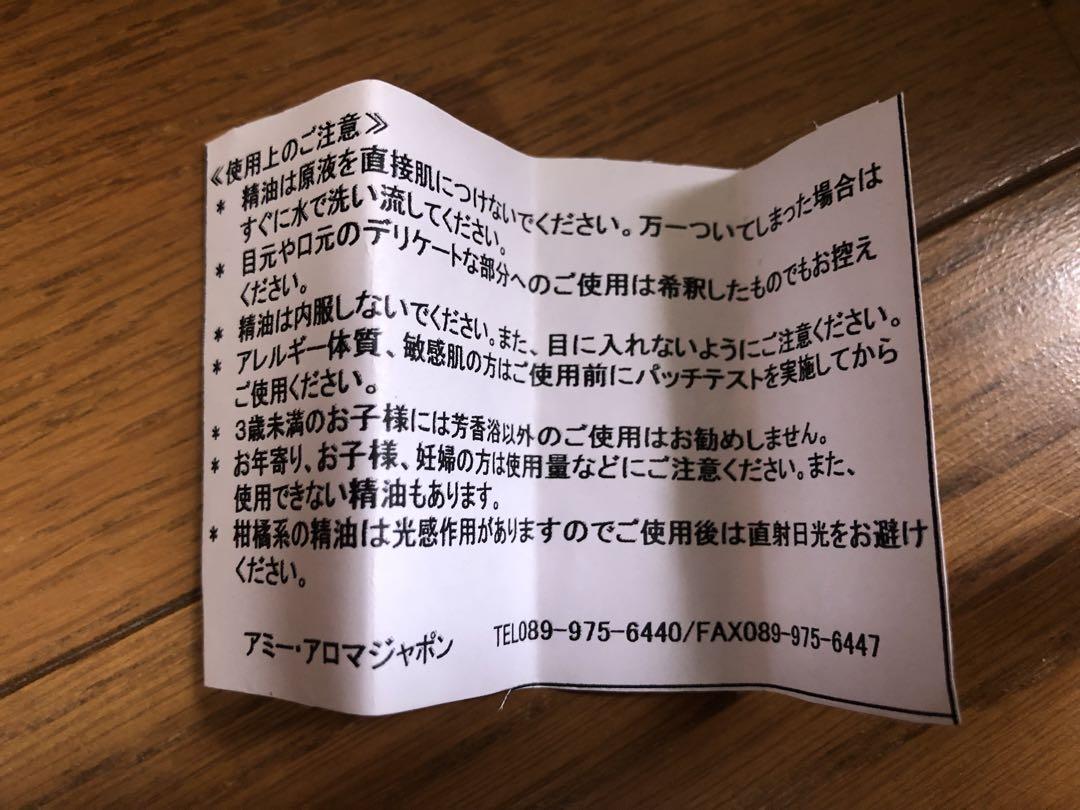 ≪使用上のご注意≫
* 精油は原液を直接肌につけないでください。万一ついてしまった場合は
すぐに水で洗い流してください。
* 目元や口元のデリケートな部分へのご使用は希釈したものでもお控え
ください。
* 精油は内服しないでください。また、目に入れないようにご注意ください。
* アレルギー体質、敏感肌の方はご使用前にパッチテストを実施してから
ご使用ください。
* 3歳未満のお子様には芳香浴以外のご使用はお勧めしません。
* お年寄り、お子様、妊婦の方は使用量などにご注意ください。また、
使用できない精油もあります。
* 柑橘系の精油は光感作用がありますのでご使用後は直射日光をお避け
ください。
アミー・アロマジャポン TEL089-975-6440/FAX089-975-6447